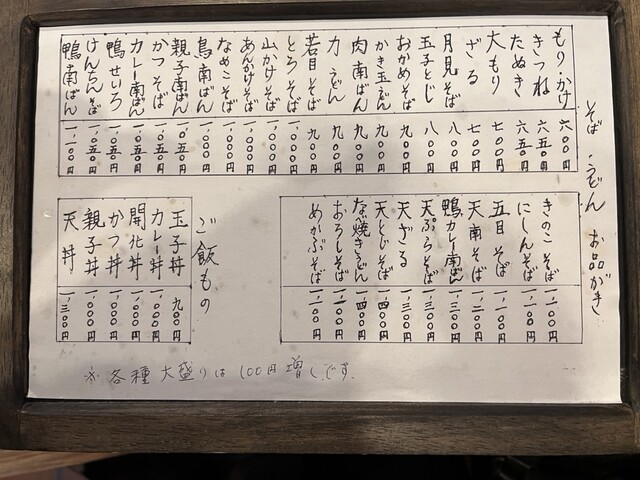 そば・うどん お品がき
もり かけ 六〇〇円
きつね 六五〇円
たぬき 六五〇円
大もり 七〇〇円
ざる 七〇〇円
月見そば 八〇〇円
玉子とじ 八〇〇円
おかめそば 九〇〇円
かき玉うどん 九〇〇円
肉南ばん 九〇〇円
力うどん 九〇〇円
若目そば 九〇〇円
とろそば 一、〇〇〇円
山かけそば 一、〇〇〇円
あんかけそば 一、〇〇〇円
なめこそば 一、〇〇〇円
鳥南ばん 一、〇〇〇円
親子南ばん 一、〇五〇円
かつそば 一、〇五〇円
カレー南ばん 一、〇五〇円
鴨せいろ 一、〇五〇円
けんちんそば 一、〇五〇円
鴨南ばん 一、一〇〇円
きのこそば 一、一〇〇円
にしんそば 一、一〇〇円
五目そば 一、一〇〇円
天南そば 一、二〇〇円
鴨カレー南ばん 一、三〇〇円
天ぷらそば 一、三〇〇円
天ざる 一、三〇〇円
天とじそば 一、四〇〇円
なべ焼きうどん 一、四〇〇円
おろしそば
めかぶそば 一、一〇〇円
ご飯もの
玉子丼 九〇〇円
カレー丼 一、〇〇〇円
開化丼 一、〇〇〇円
かつ丼 一、〇〇〇円
親子丼 一、〇〇〇円
天丼 一、三〇〇円
※各種大盛りは100円増しです。